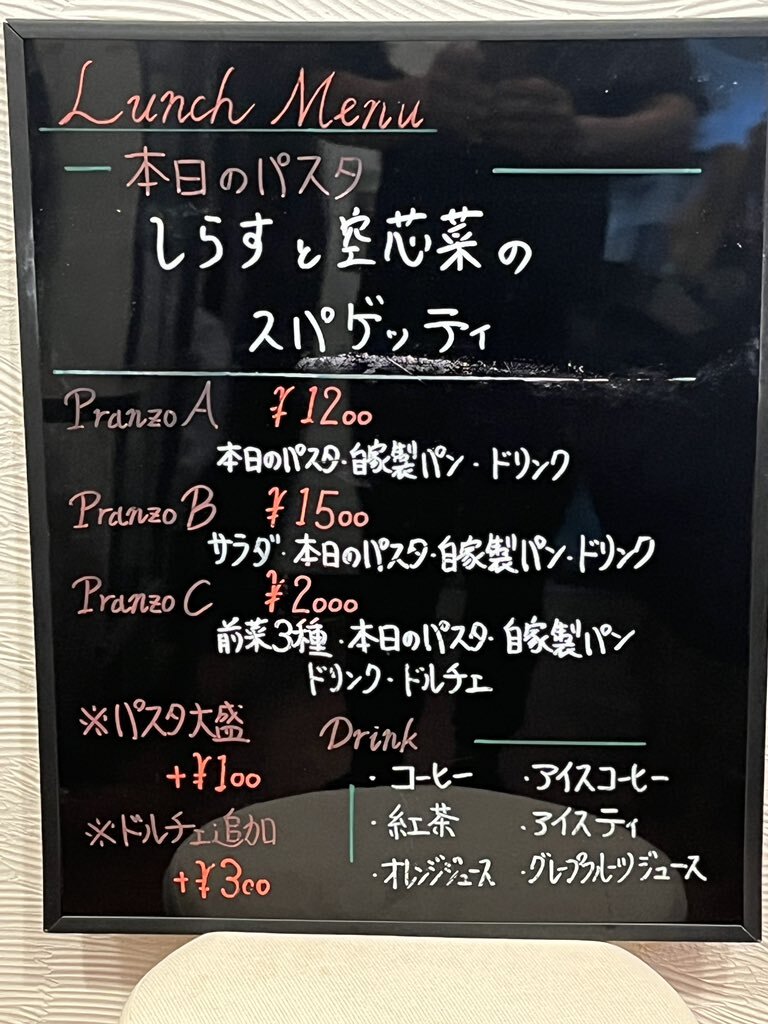 Lunch Menu
本日のパスタ
しらすと空芯菜の
スパゲッティ
Pranzo A ¥1200
本日のパスタ・自家製パン・ドリンク
Pranzo B ¥1500
サラダ・本日のパスタ・自家製パン・ドリンク
Pranzo C ¥2000
前菜3種・本日のパスタ・自家製パン
ドリンク・ドルチェ
※パスタ大盛
+¥100
※ドルチェ追加
+¥300
Drink
・コーヒー ・アイスコーヒー
・紅茶 ・アイスティ
・オレンジジュース ・グレープフルーツジュース